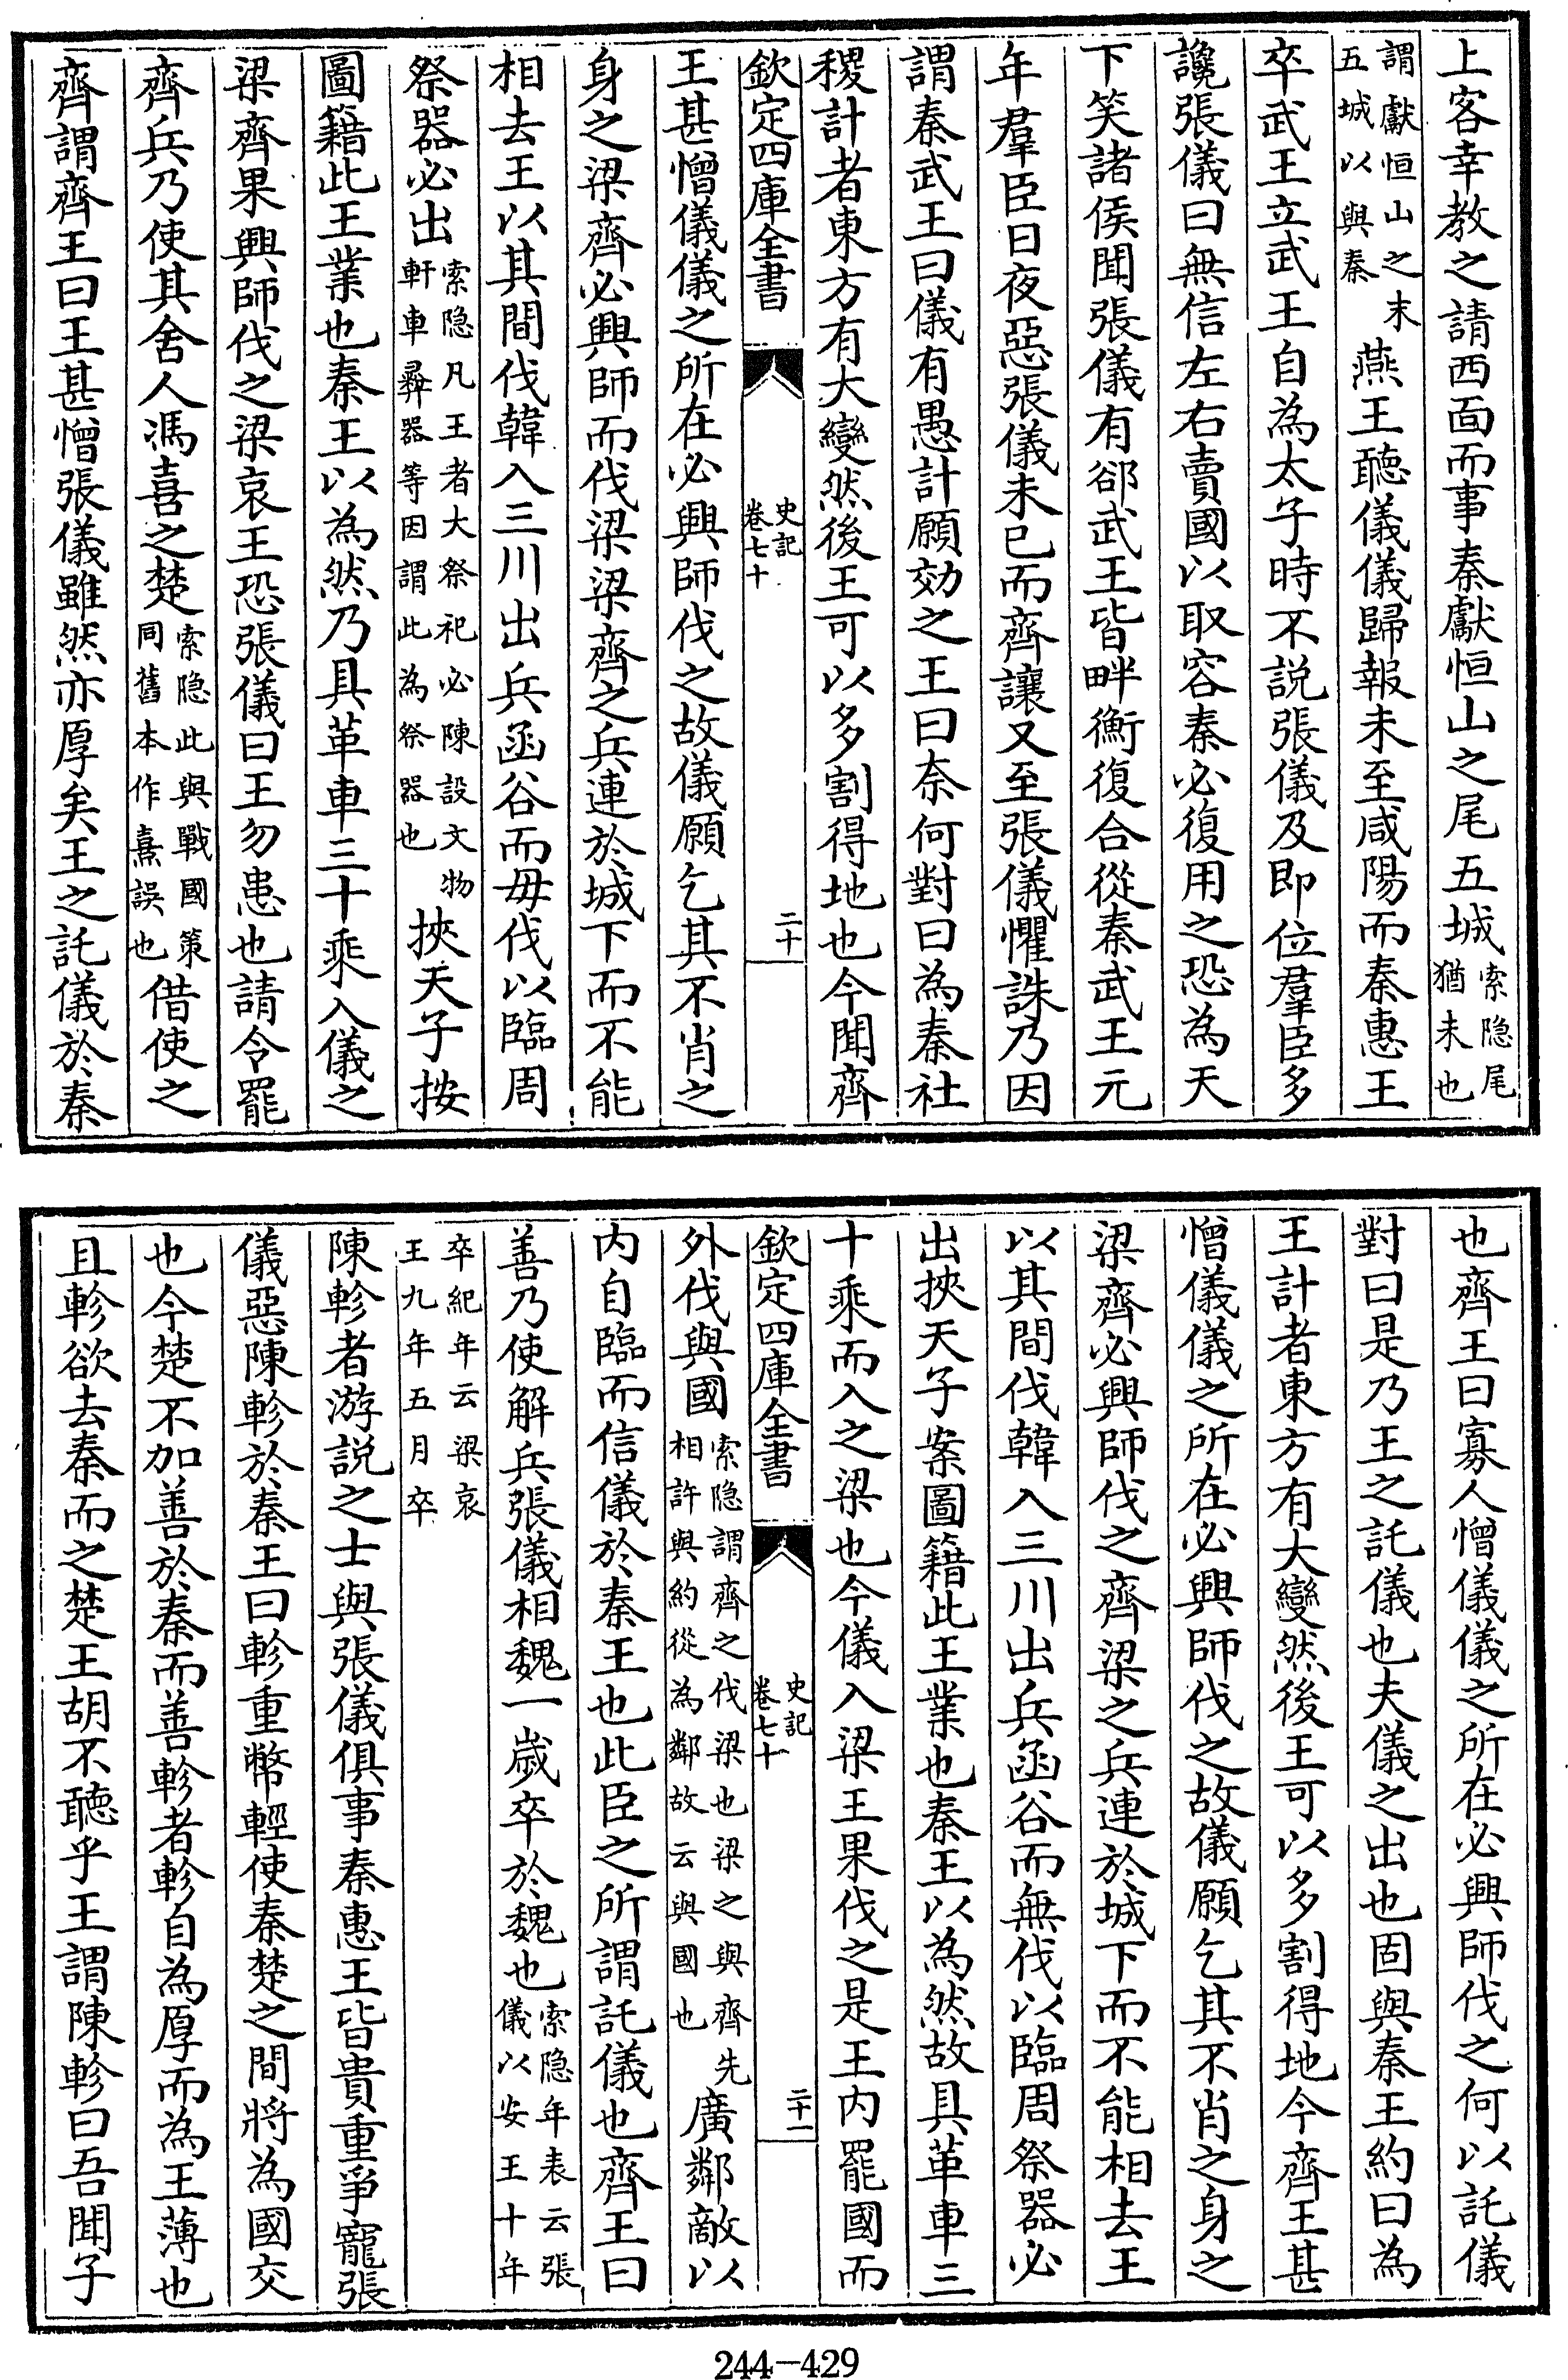 上客幸教之請西面而事秦獻恒山之尾五城索隐尾猶末也
謂獻恒山之末五城以與秦燕王聽儀儀歸報未至咸陽而秦惠王
卒武王立武王自為太子時不説張儀及即位羣臣多
讒張儀曰無信左右賣國以取容秦必復用之恐為天
下笑諸侯聞張儀有郤武王皆畔衡復合從秦武王元
年羣臣日夜惡張儀未已而齊讓又至張儀懼誅乃因
謂秦武王曰儀有愚計願効之王曰奈何對曰為秦社
稷計者東方有大變然後王可以多割得地也今聞齊
欽定四庫全書
史記
卷七十
二十
王甚憎儀儀之所在必興師伐之故儀願乞其不肖之
身之梁齊必興師而伐梁梁齊之兵連於城下而不能
相去王以其間伐韓入三川出兵函谷而毋伐以臨周
祭器必出索隐凡王者大祭祀必陳設文物軒車彛器等因謂此為祭器也挾天子按
圖籍此王業也秦王以為然乃具革車三十乘入儀之
梁齊果興師伐之梁哀王恐張儀曰王勿患也請令罷
齊兵乃使其舍人馮喜之楚索隐此與戰國策同舊本作熹誤也借使之
齊謂齊王曰王甚憎張儀雖然亦厚矣王之託儀於秦
也齊王曰寡人憎儀儀之所在必興師伐之何以託儀
對曰是乃王之託儀也夫儀之出也固與秦王約曰為
王計者東方有大變然後王可以多割得地今齊王甚
憎儀儀之所在必興師伐之故儀願乞其不肖之身之
梁齊必興師伐之齊梁之兵連於城下而不能相去王
以其間伐韓入三川出兵函谷而無伐以臨周祭器必
出挾天子案圖籍此王業也秦王以為然故具革車三
十乘而入之梁也今儀入梁王果伐之是王内罷國而
欽定四庫全書
史記
卷七十
二十一
外伐與國索隐謂齊之伐梁也梁之與齊先相許與約從為鄰故云與國也廣鄰敵以
内自臨而信儀於秦王也此臣之所謂託儀也齊王曰
善乃使解兵張儀相魏一歲卒於魏也索隐年表云張儀以安王十年
卒紀年云梁哀王九年五月卒
陳軫者游説之士與張儀俱事秦惠王皆貴重爭寵張
儀惡陳軫於秦王曰軫重幣輕使秦楚之間將為國交
也今楚不加善於秦而善軫者軫自為厚而為王薄也
且軫欲去秦而之楚王胡不聽乎王謂陳軫曰吾聞子
244-429